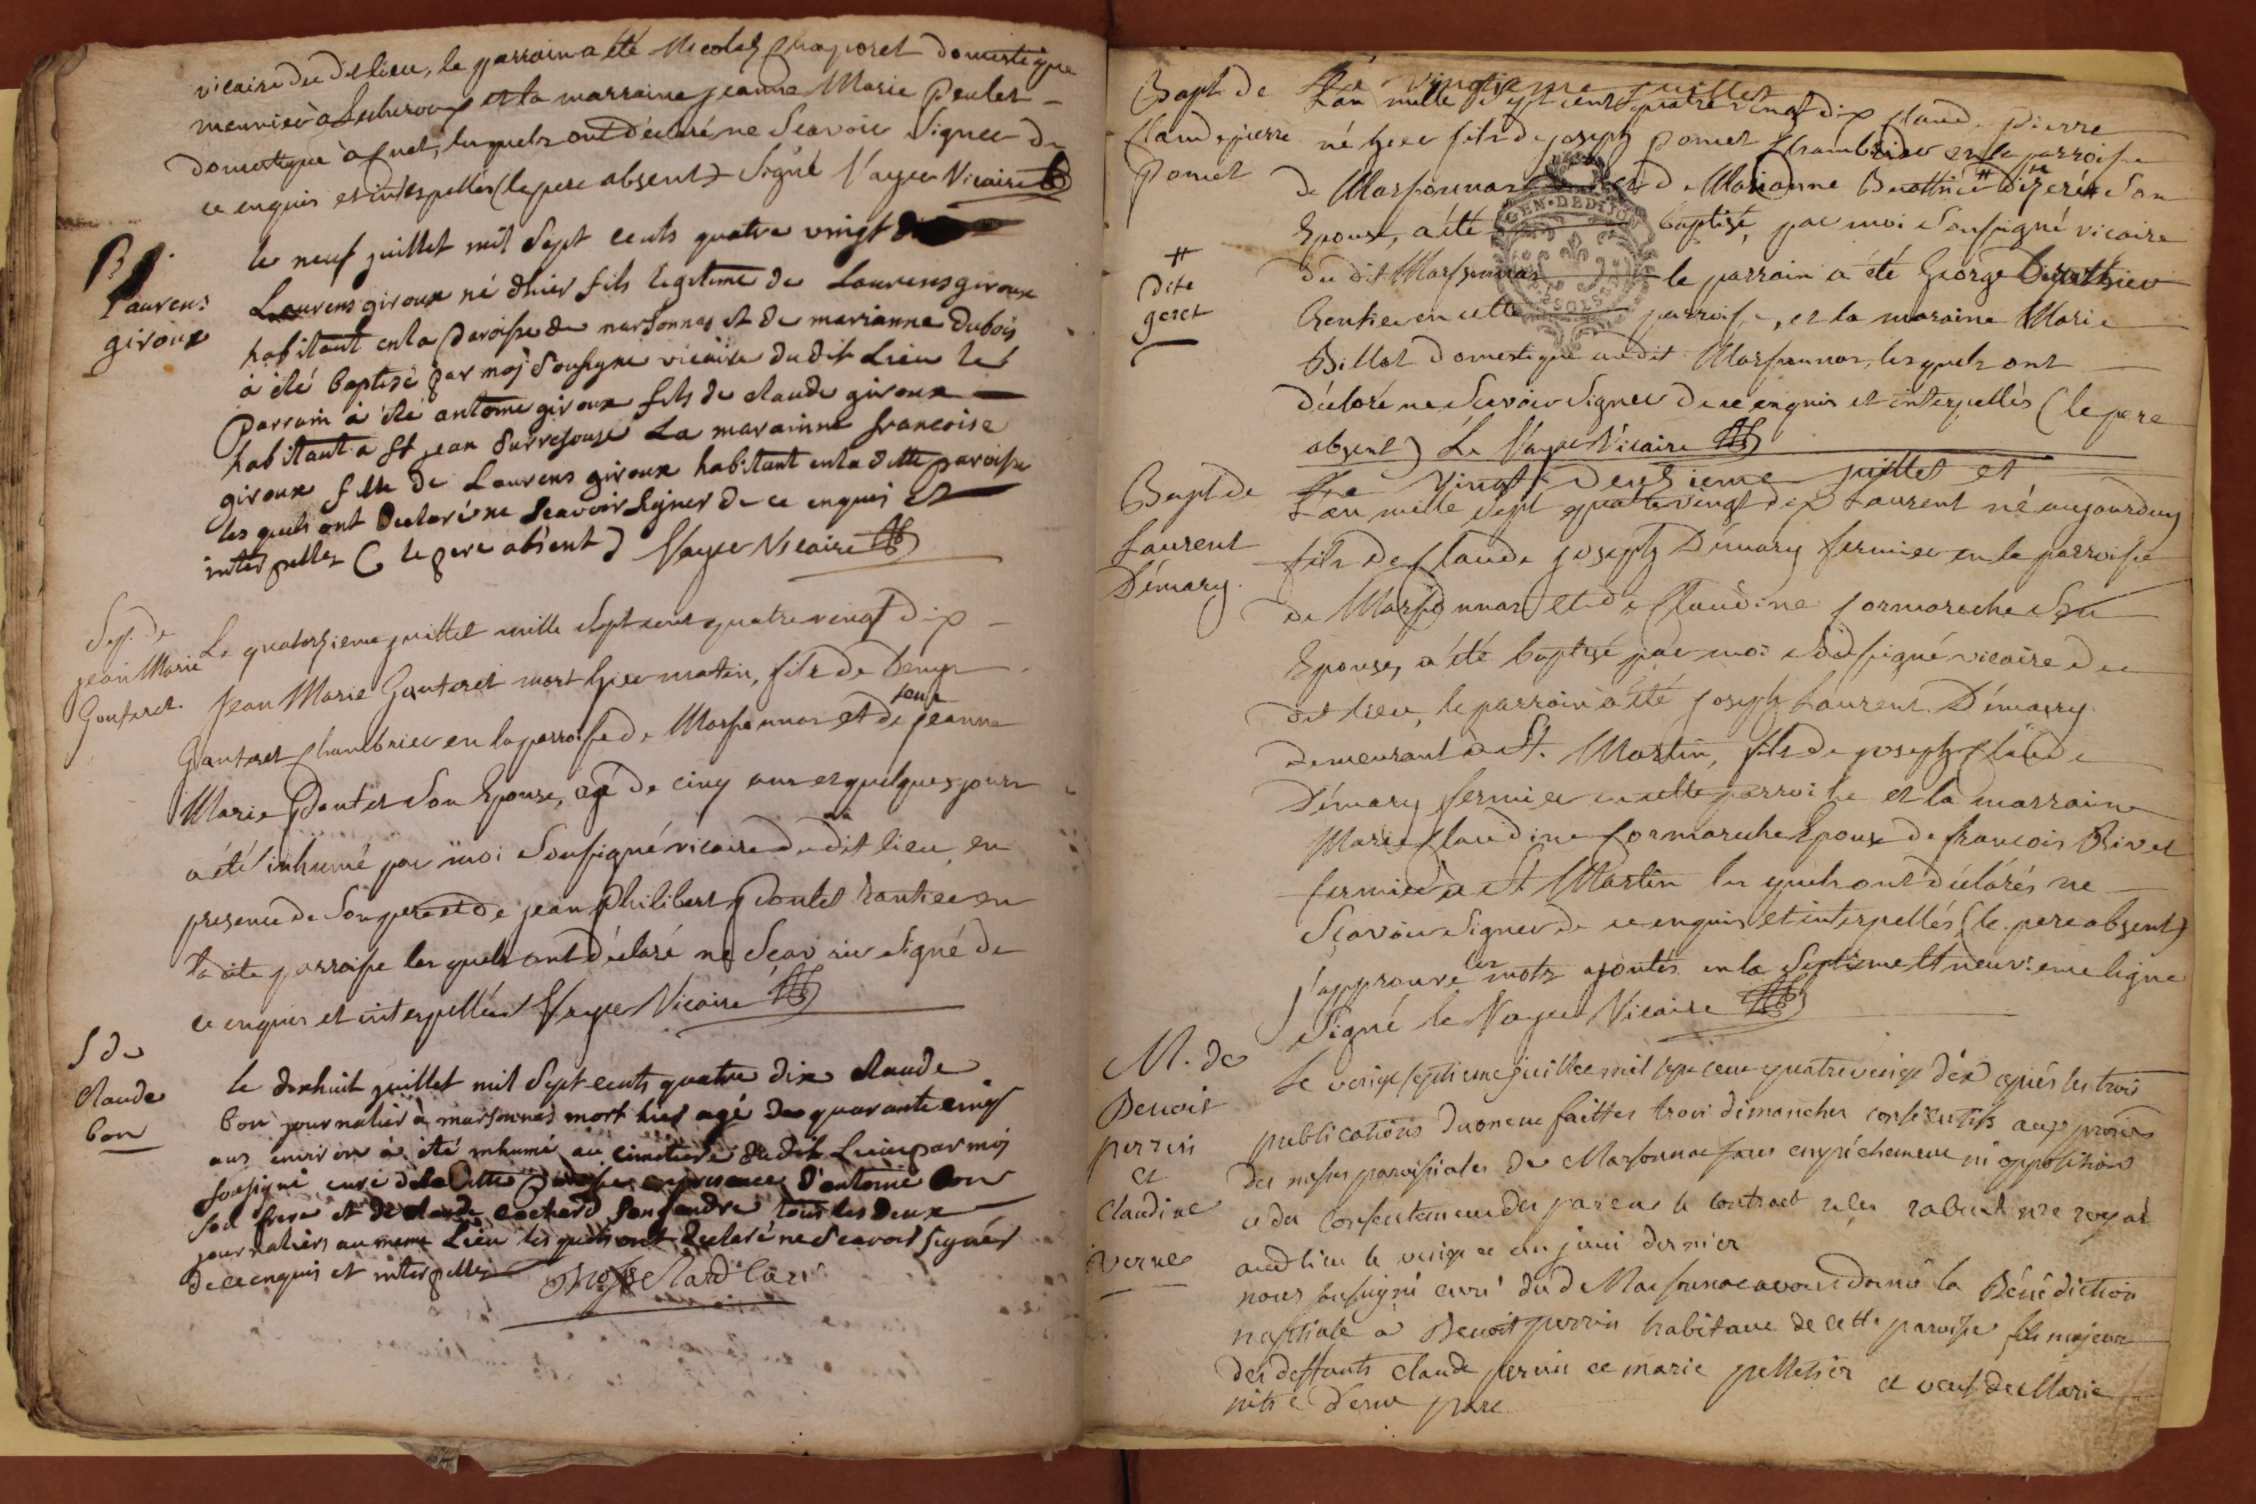 vicaire du dit lieu, le parrain a été Nicolas Chaporet domestique
meunier à et la marraine jeanne Marie Peulet
domestique à Cuet, lesquels ont déclaré ne Scavoir Signer de
ce enquis et interpellés (le pere absent) Signé Vicaire
B
Laurens
giroux
le neuf juillet mil Sept cents quatre vingt
Laurens giroux né d'hier fils legitime de Laurens giroux
habitant en la paroisse de marsonnas et de marianne Dubois
à été baptisé par moi Sousigne vicaire du dit Lieu le
parrain à été antoine giroux fils de claude giroux
habitant a St jean Surresouse La marainne francoise
giroux fille de Laurens giroux habitant en la ditte paroisse
les quels ont declaré ne Scavoir Signer de ce enquis et
interpellez (le pere absent) Vicaire
Sep. de
jean Marie
Gauteret.
Le quatorzieme juillet mille Sept cent quatre vingt dix
Jean Marie Gauteret mort hier matin, fils de Denys
Gauteret Chambrier en la parroisse de Marsonnas et de feue jeanne
Marie Pontet Son Epouse, agé de cinq ans et quelques jours
a été inhumé par moi Sousigné vicaire du dit lieu en
presence de Son pere et de jean Philibert Pontet Rentier en
la dite parroisse les quels ont déclaré ne Scavoir Signé de
ce enquis et interpellés Vicaire
S de
claude
bon
le dixhuit juillet mil Sept cents quatre dix claude
bon journalier à marsonnas mort hier agé de quarante cinq
ans environ à été inhumé au cimitiere du dit Lieu par moi
sousigné curé de la ditte paroisse en presence d'antoine bon
son frere et de claude cochard Son gendre tous les deux
journaliers au meme Lieu les quels ont declaré ne Scavoir Signer
de ce enquis et interpellez
curé
Bapt. de
Claude pierre
Pomet
#
dite
geret
Le vingtieme juillet
L'an mille Sept cent quatre vingt dix Claude Pierre
né hier fils de joseph Pomet Chambrier en la parroisse
de Marsonnas et de Marianne # Son
Epouse, a été baptisé, par moi Sousigné vicaire
du dit Marsonnas le parrain a été George
Rentier en cette parroisse, et la maraine Marie
Billet domestique au dit Marsonnas, lesquels ont
déclaré ne Scavoir Signer de ce enquis et interpellés (le pere
absent) Vicaire
Bapt de
Laurent
Démary.
Le vingt deuxieme juillet et
L'an mille Sept quatre vingt dix Laurent né aujourduy
fils de Claude joseph Démary fermier en la parroisse
de Marsonnas et de Claudine formareche Son
Epouse, a été baptisé par moi Soussigné vicaire du
dit lieu, le parrain a été joseph Laurent Démary
demeurant à St. Martin, fils de joseph Claude
Démary fermier en cette parroisse et la marraine
Marie Claudine formareche Epouse de françois Rivet
fermier à St Martin les quels ont déclarés ne
Sçavoir Signer de ce enquis et interpellés (le pere absent)
j'approuve les mots ajoutés en la Septieme et neuvieme ligne
Signé Vicaire
M. de
Benoit
perrin
et
Claudine
verne
Le vingt septieme juillet mil sept cent quatre vingt dix après les trois
publications du one faittes trois dimanches consecutifs aux prones
des messes paroissiales de Marsonnas sans empêchement ni opposition
ce du consentement des parens le contract reçu nre royal
aud lieu le vingt et un juin dernier
nous soussigné curé dud Marsonnas avons donné la Bénédiction
nuptiale a Benoit perrin habitant de cette paroisse fils majeur
des deffunts claude perrin et marie pelletier et veuf de Marie
part